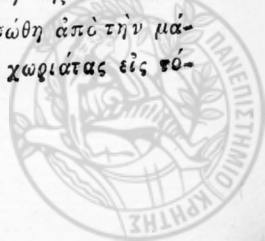 σώθη ἀπὸ τὴν μά-
χωριάτας εἰς τό-
ΠΑΝΕΠΙΣΤΗΜΙΟ ΚΡΗΤΗΣ